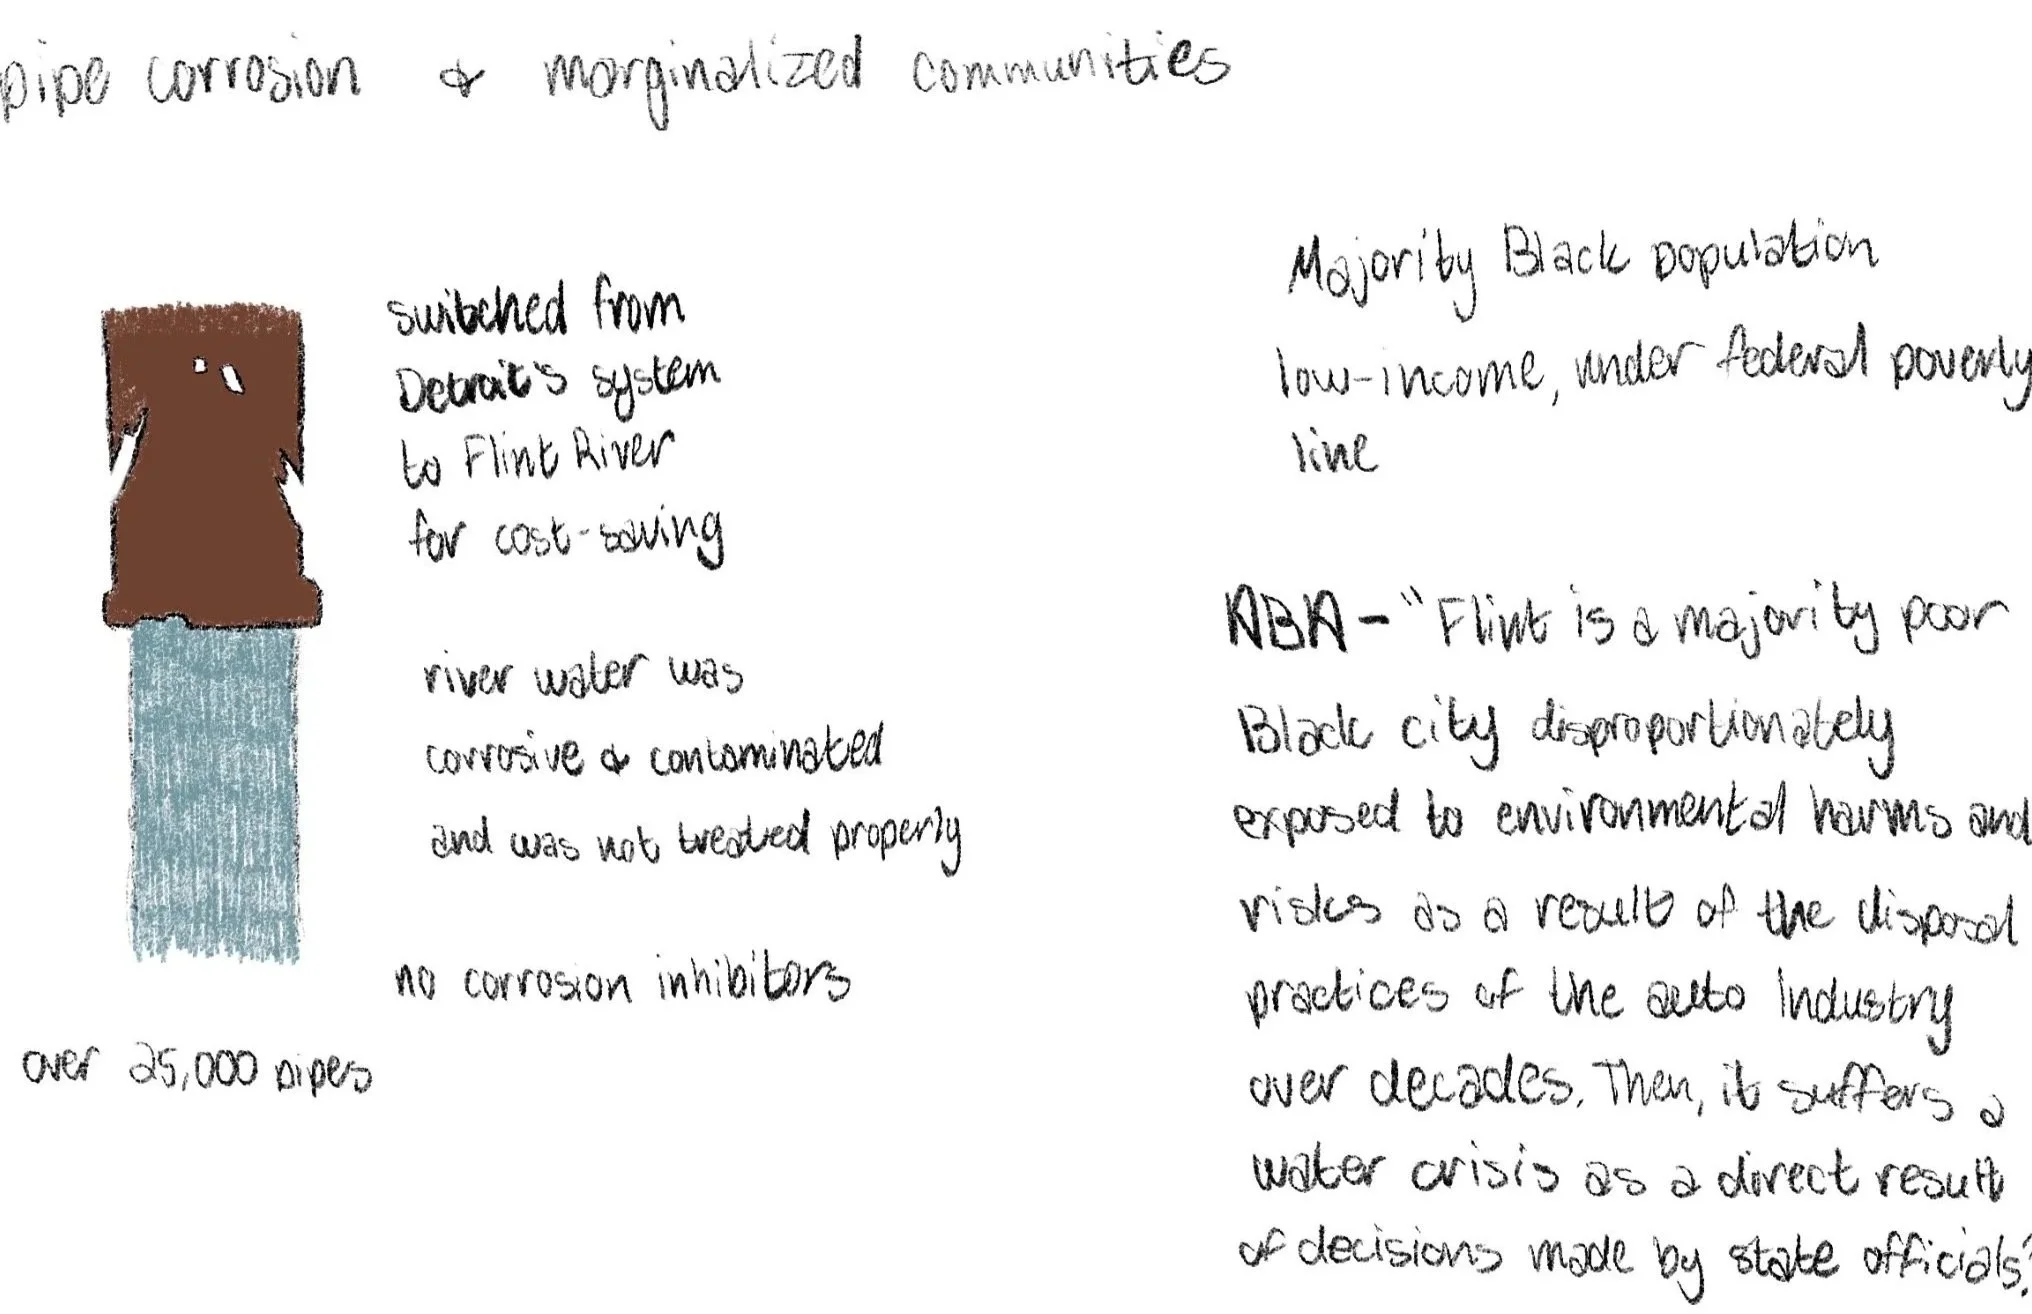 pipe corrosion & marginalized communities
switched from
Detroit's system
to Flint River
for cost-saving
river water was
corrosive & contaminated
and was not treated properly
no corrosion inhibitors
over 25,000 pipes
Majority Black population
low-income, under federal poverty
line
ABA - "Flint is a majority poor
Black city disproportionately
exposed to environmental harms and
risks as a result of the disposal
practices of the auto industry
over decades. Then, it suffers a
water crisis as a direct result
of decisions made by state officials."